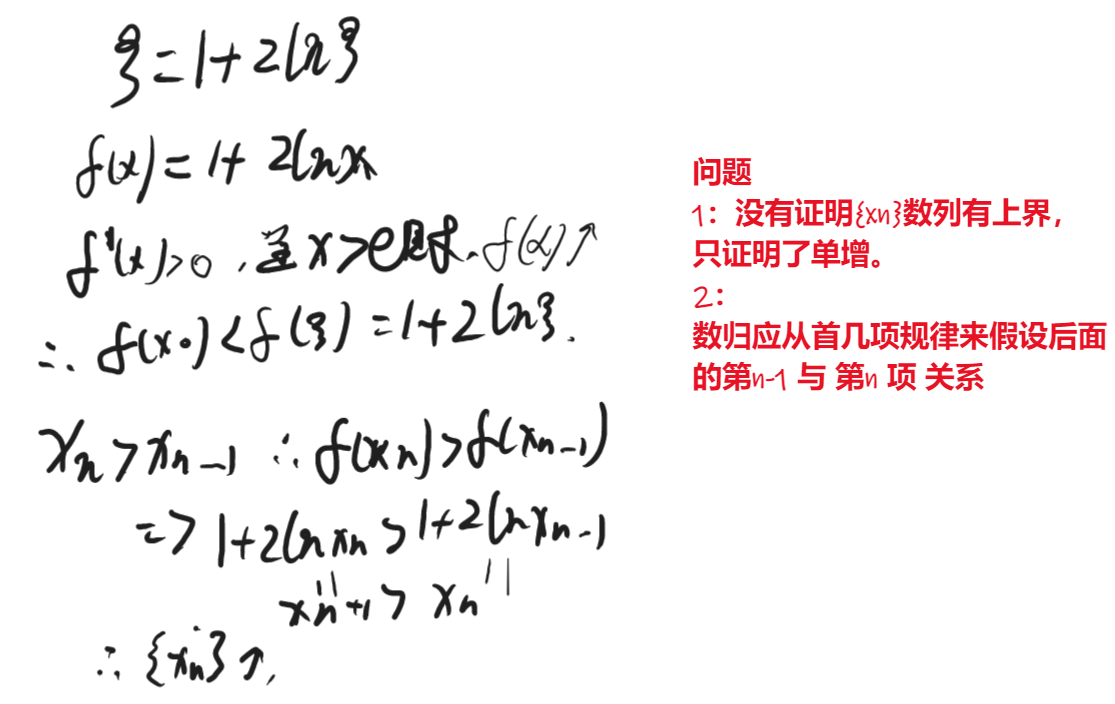 ξ=1+2lnξ
f(x)=1+2lnx
f'(x)>0,且x>e时,f(x)↑
∴f(x₀)<f(ξ)=1+2lnξ.
xn>xn-1 ∴f(xn)>f(xn-1)
=>1+2lnxn>1+2lnxn-1
xn+1>xn
∴{xn}↑,
问题
1:没有证明{xn}数列有上界,
只证明了单增。
2:
数归应从首几项规律来假设后面
的第n-1 与 第n 项 关系